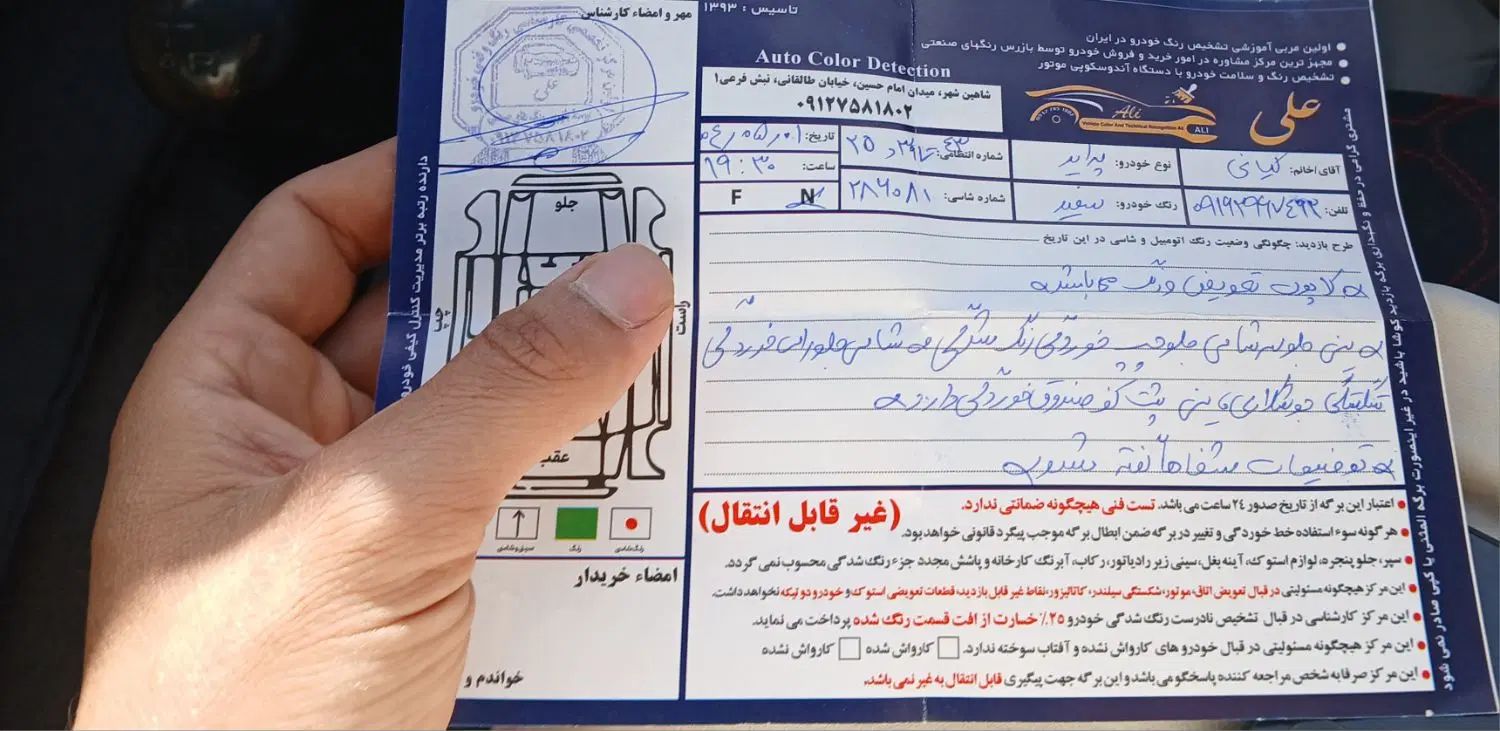 تاسیس : ۱۳۹۳
اولین مربی آموزشی تشخیص رنگ خودرو در ایران
مجهز ترین مرکز مشاوره در امور خرید و فروش خودرو توسط بازرس رنگهای صنعتی
تشخیص رنگ و سلامت خودرو با دستگاه آندوسکوپی موتور
Auto Color Detection
شاهین شهر، میدان امام حسین، خیابان طالقانی، نبش فرعی۱
۰۹۱۲۷۵۸۱۸۰۲
علی
Ali
Vehicle Color And Technical Recognition
ALI
آقای/خانم: کیانی
نوع خودرو: پراید
شماره انتظامی:
تاریخ:
تلفن:
رنگ خودرو: سفید
شماره شاسی: ۲۸۶۰۸۱
ساعت: ۱۹:۳۰
F N
طرح بازدید: چگونگی وضعیت رنگ اتومبیل و شاسی در این تاریخ
کاپوت تعویض و رنگ می باشد
سینی جلو سرشاسی جلو چپ خوردگی رنگ شدگی شاسی جلو راست خوردگی
سینی پشت کف صندوق خوردگی دارد
توضیحات شفاها گفته شد
اعتبار این برگه از تاریخ صدور ۲۴ ساعت می باشد. تست فنی هیچگونه ضمانتی ندارد.
(غیر قابل انتقال)
هر گونه سوء استفاده خط خوردگی و تغییر در برگه ضمن ابطال برگه موجب پیگرد قانونی خواهد بود.
سپر، جلو پنجره، لوازم استوک، آینه بغل، سینی زیر رادیاتور، رکاب، آبرنگ کارخانه و پاشش مجدد جزء رنگ شدگی محسوب نمی گردد.
این مرکز هیچگونه مسئولیتی در قبال تعویض اتاق، موتور، شکستگی سیلندر، کاتالیزور، نقاط غیر قابل بازدید، قطعات تعویضی استوک و خودرو دو تیکه نخواهد داشت.
این مرکز کارشناسی در قبال تشخیص نادرست رنگ شدگی خودرو ۲۵٪ خسارت از افت قسمت رنگ شده پرداخت می نماید.
این مرکز هیچگونه مسئولیتی در قبال خودرو های کارواش نشده و آفتاب سوخته ندارد. کارواش شده کارواش نشده
این مرکز صرفا به شخص مراجعه کننده پاسخگو می باشد و این برگه جهت پیگیری قابل انتقال به غیر نمی باشد.
مشتری گرامی در حفظ و نگهداری برگه بازدید کوشا باشید در غیر اینصورت برگه المثنی یا کپی صادر نمی شود
مهر و امضاء کارشناس
علی
۰۹۱۲۷۵۸۱۸۰۲
جلو
چپ
راست
عقب
رنگ شاسی
رنگ
امضاء خریدار
خواندم و
دارنده رتبه برتر مدیریت کنترل کیفی خودرو